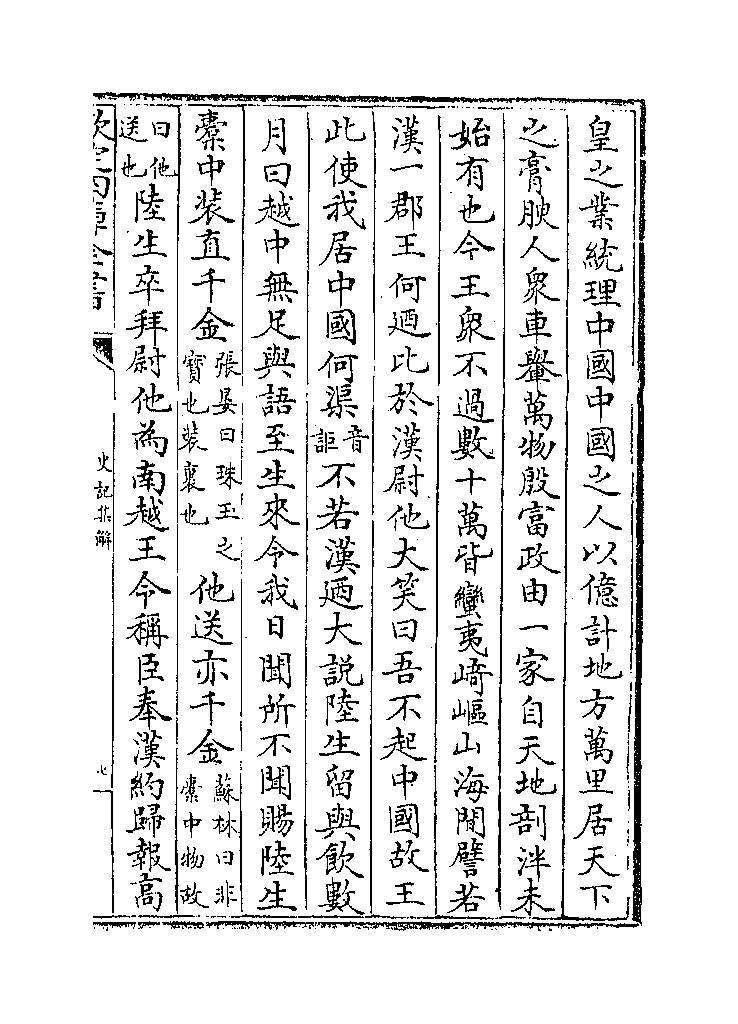 皇之業統理中國中國之人以億計地方萬里居天下
之膏腴人衆車轝萬物殷富政由一家自天地剖泮未
始有也今王衆不過數十萬皆蠻夷崎嶇山海間譬若
漢一郡王何廼比於漢尉他大笑曰吾不起中國故王
此使我居中國何渠音詎不若漢廼大説陸生留與飲數
月曰越中無足與語至生來令我日聞所不聞賜陸生
橐中裝直千金張晏曰珠玉之寳也裝裹也他送亦千金蘇林曰非橐中物故
曰他送也陸生卒拜尉他為南越王令稱臣奉漢約歸報高
欽定四庫全書
史記集解
七